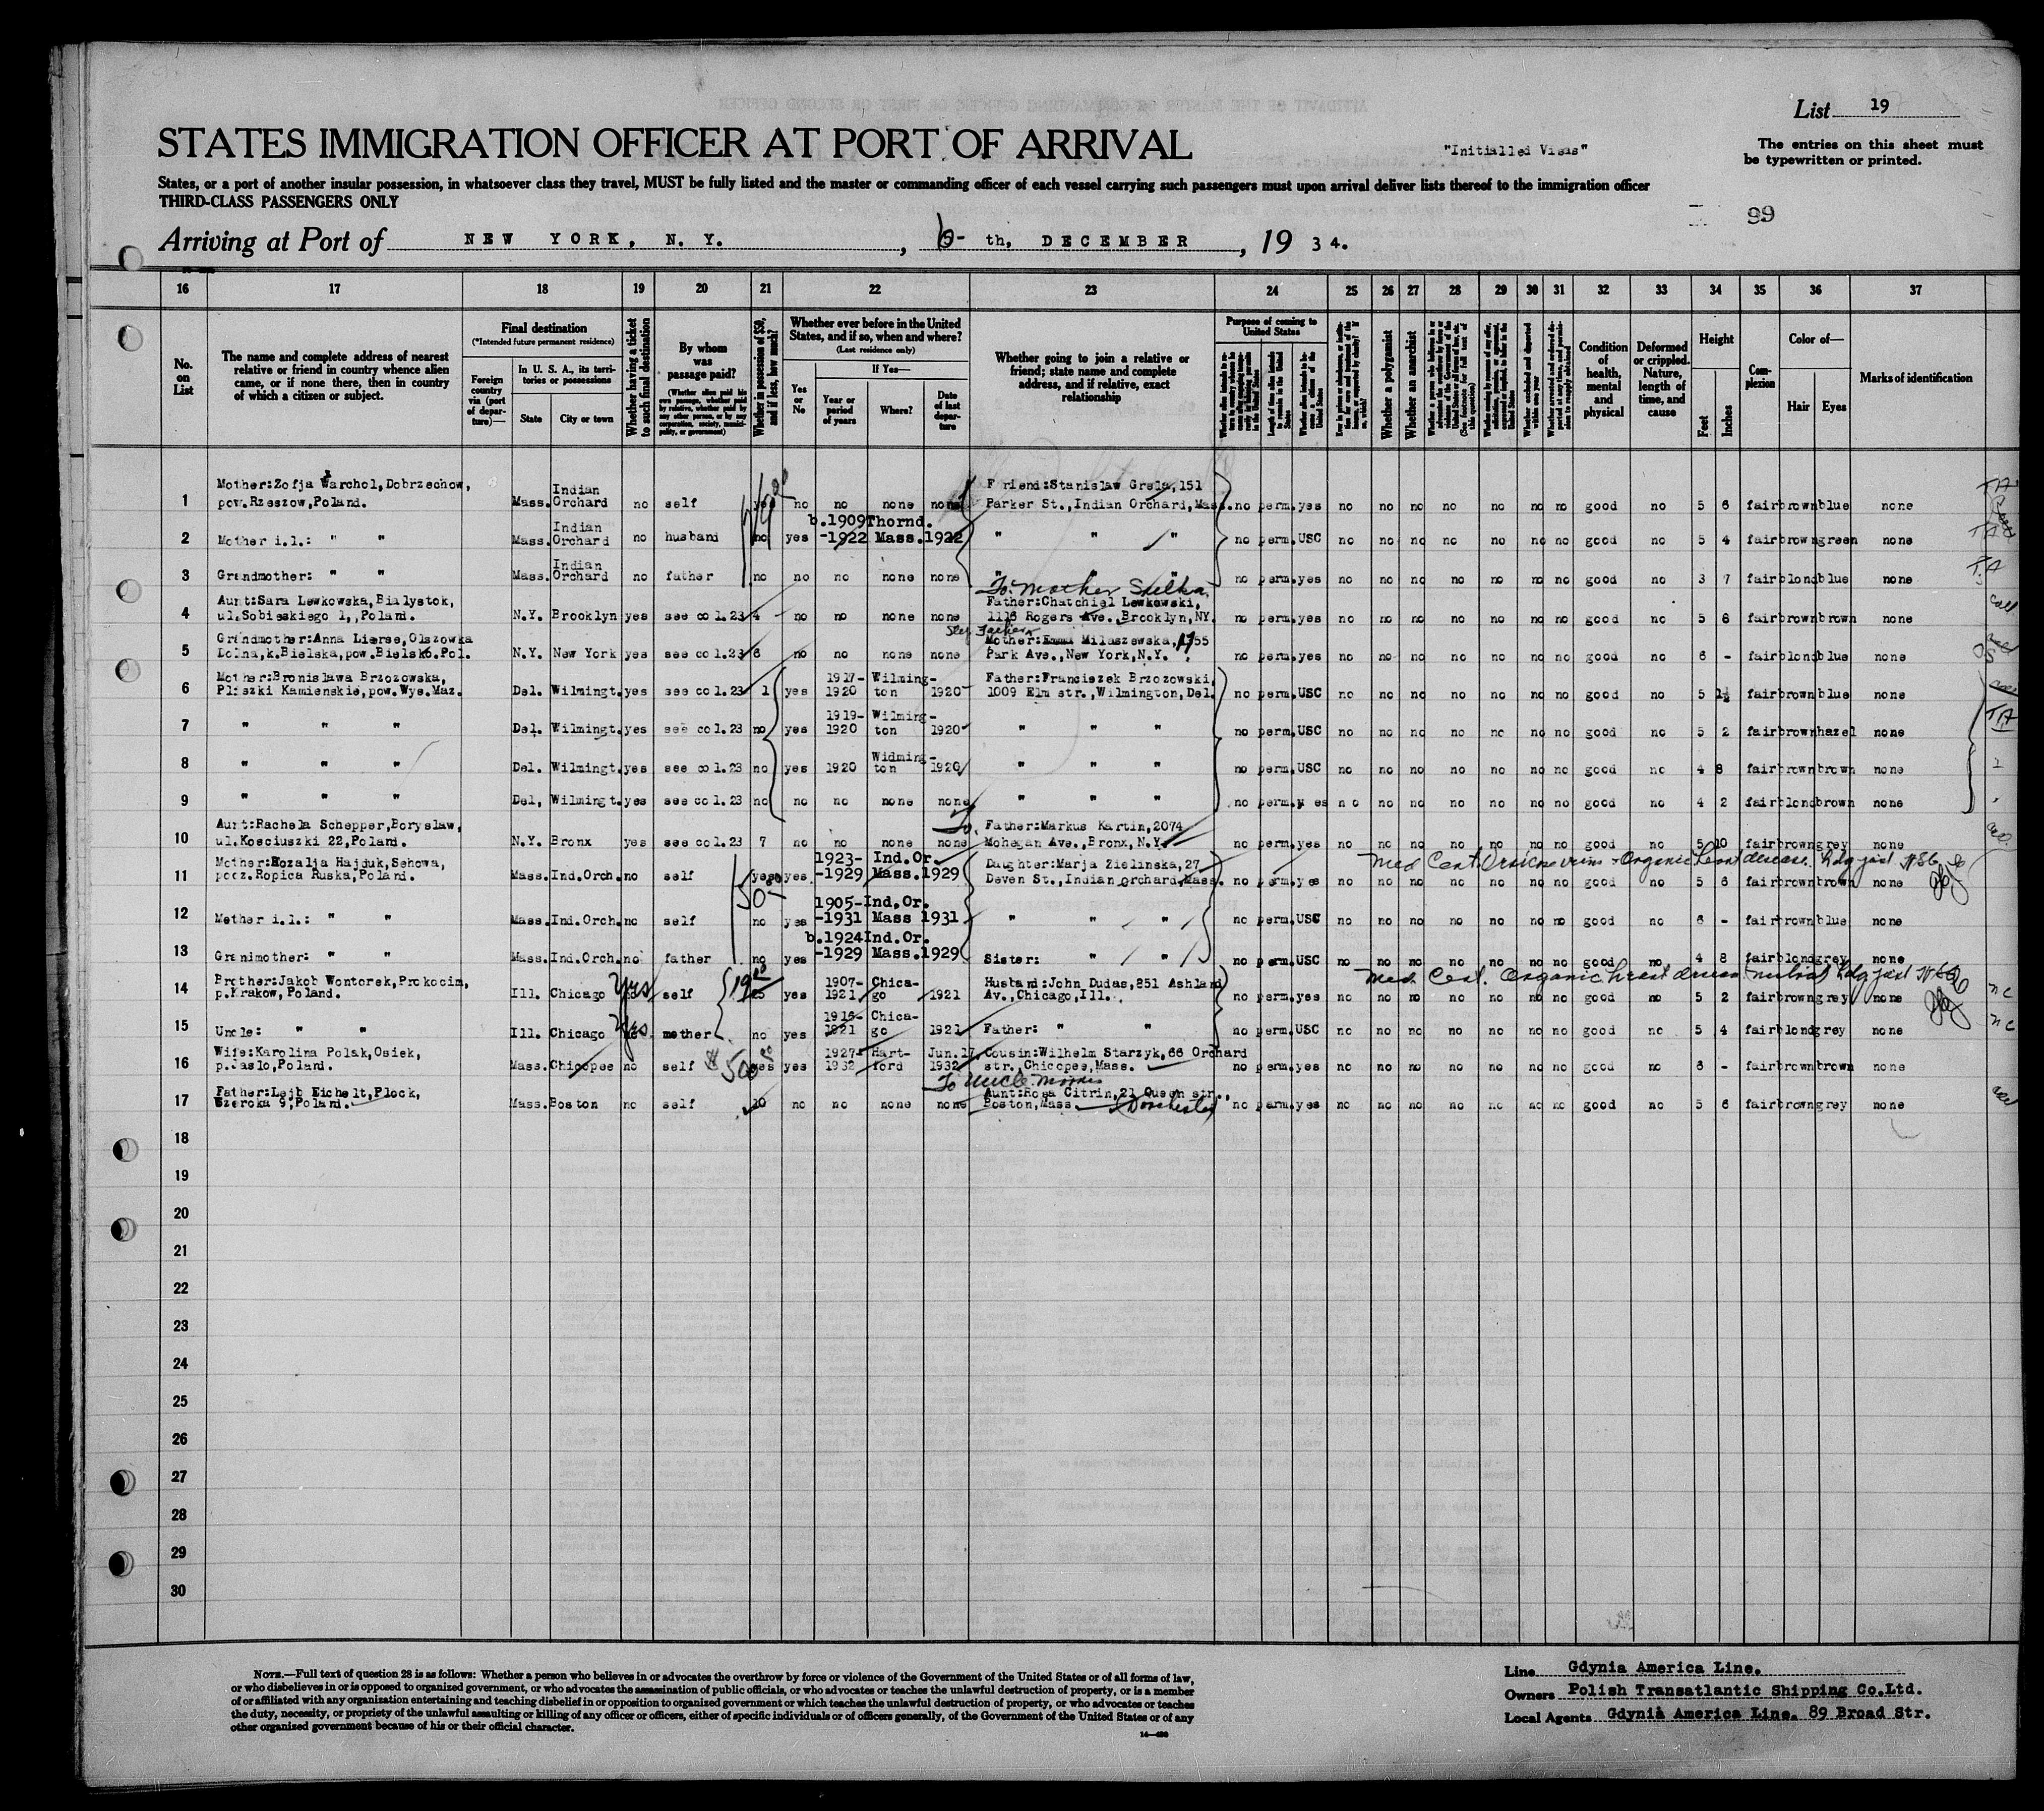 List 19
STATES IMMIGRATION OFFICER AT PORT OF ARRIVAL
"Initialled Visas"
The entries on this sheet must
be typewritten or printed.
States, or a port of another insular possession, in whatsoever class they travel, MUST be fully listed and the master or commanding officer of each vessel carrying such passengers must upon arrival deliver lists thereof to the immigration officer
THIRD-CLASS PASSENGERS ONLY
99
Arriving at Port of NEW YORK, N. Y. , 6- th, DECEMBER , 19 34.
16 17 18 19 20 21 22 23 24 25 26 27 28 29 30 31 32 33 34 35 36 37
No. on List
The name and complete address of nearest relative or friend in country whence alien came, or if none there, then in country of which a citizen or subject.
Final destination
(*Intended future permanent residence)
Foreign country via (port of departure)—
In U. S. A., its territories or possessions
State
City or town
Whether having a ticket to such final destination
By whom was passage paid?
(Whether alien paid his own passage, whether paid by relative, whether paid by any other person, or by any corporation, society, municipality, or government)
Whether in possession of $50, and if less, how much?
Whether ever before in the United States, and if so, when and where?
(Last residence only)
Yes or No
If Yes—
Year or period of years
Where?
Date of last departure
Whether going to join a relative or friend; state name and complete address, and if relative, exact relationship
Purpose of coming to United States
Length of time alien intends to remain in the United States
Whether alien intends to become a citizen of the United States
Whether a polygamist
Whether an anarchist
Condition of health, mental and physical
Deformed or crippled. Nature, length of time, and cause
Height
Feet
Inches
Complexion
Color of—
Hair
Eyes
Marks of identification
1 Mother:Zofja Warchol,Dobrzechow, pow.Rzeszow,Poland. Mass. Indian Orchard no self yes no no none none Friend:Stanislaw Grela,151 Parker St.,Indian Orchard,Mass. no perm. yes no no no no no no no good no 5 6 fair brown blue none
2 Mother i.l.: " " Mass. Indian Orchard no husband no yes b.1909 -1922 Thornd. Mass. 1922 " " " no perm. USC no no no no no no no good no 5 4 fair brown green none
3 Grandmother: " " Mass. Indian Orchard no father no no no none none " " " no perm. yes no no no no no no no good no 3 7 fair blond blue none
To: mother
4 Aunt:Sara Lewkowska,Bialystok, ul.Sobieskiego 1,,Poland. N.Y. Brooklyn yes see col.23 4 no no none none Father:Chatchiel Lewkowski, 1116 Rogers Ave.,Brooklyn,NY. no perm. yes no no no no no no no good no 5 8 fair brown brown none
5 Grandmother:Anna Lierse,Olszowka Dolna,k.Bielska,pow.Bielsko.Pol. N.Y. New York yes see col.23 6 no no none none Step Father Mother: Milaszewska, 1755 Park Ave.,New York,N.Y. no perm. yes no no no no no no no good no 6 - fair blond blue none
6 Mother:Bronislawa Brzozowska, Ploszki Kamienskie,pow.Wys.Maz. Del. Wilmingt. yes see col.23 1 yes 1917-1920 Wilmington 1920 Father:Franciszek Brzozowski, 1009 Elm str.,Wilmington,Del. no perm. USC no no no no no no no good no 5 1½ fair brown blue none
7 " " " Del. Wilmingt. yes see col.23 no yes 1919-1920 Wilmington 1920 " " " no perm. USC no no no no no no no good no 5 2 fair brown hazel none
8 " " " Del. Wilmingt. yes see col.23 no yes 1920 Widmington 1920 " " " no perm. USC no no no no no no no good no 4 8 fair brown brown none
9 " " " Del, Wilmingt. yes see col.23 no no no none none " " " no perm. yes no no no no no no no good no 4 2 fair blond brown none
10 Aunt:Rachela Schepper,Boryslaw, ul.Kosciuszki 22,Poland. N.Y. Bronx yes see col.23 7 no no none none To. Father:Markus Kartin,2074 Mohegan Ave.,Bronx,N.Y. no perm. yes no no no no no no no good no 5 10 fair brown grey none
11 Mother:Rozalja Hajduk,Sehowa, pocz.Ropica Ruska,Poland. Mass. Ind.Orch. no self yes yes 1923--1929 Ind.Or. Mass. 1929 Daughter:Marja Zielinska,27 Deven St.,Indian Orchard,Mass. no perm. yes no no no no no no no good no 5 6 fair brown brown none
12 Mother i.l.: " " Mass. Ind.Orch. no self no yes 1905--1931 Ind.Or. Mass 1931 " " " no perm. USC no no no no no no no good no 6 - fair brown blue none
13 Grandmother: " " Mass. Ind.Orch. no father no yes b.1924 -1929 Ind.Or. Mass. 1929 Sister: " " no perm. USC no no no no no no no good no 4 8 fair blond grey none
Med Cert. Organic heart disease
14 Brother:Jakob Wontorek,Prokocim, p.Krakow,Poland. Ill. Chicago Yes self 25 yes 1907-1921 Chicago 1921 Husband:John Dudas,851 Ashland Av.,Chicago,Ill. no perm. yes no no no no no no no good no 5 2 fair brown grey none
15 Uncle: " " Ill. Chicago Yes mother no yes 1916-1921 Chicago 1921 Father: " " no perm. USC no no no no no no no good no 5 4 fair blond grey none
16 Wife:Karolina Polak,Osiek, p.Jaslo,Poland. Mass. Chicopee no self $500 yes yes 1927-1932 Hartford Jun.17, 1932 Cousin:Wilhelm Starzyk,66 Orchard str.,Chicopee,Mass. no perm. yes no no no no no no no good no 6 - fair brown brown none
To Uncle Morris
17 Father:Lejb Eichelt,Plock, Szeroka 9,Poland. Mass. Boston no self 10 no no none none Aunt:Rosa Citrin,21 Queen str., Boston,Mass (Dorchester) no perm. yes no no no no no no no good no 5 6 fair brown grey none
18
19
20
21
22
23
24
25
26
27
28
29
30
NOTE.—Full text of question 28 is as follows: Whether a person who believes in or advocates the overthrow by force or violence of the Government of the United States or of all forms of law,
or who disbelieves in or is opposed to organized government, or who advocates the assassination of public officials, or who advocates or teaches the unlawful destruction of property, or is a member
of or affiliated with any organization entertaining and teaching disbelief in or opposition to organized government or which teaches the unlawful destruction of property, or who advocates or teaches
the duty, necessity, or propriety of the unlawful assaulting or killing of any officer or officers, either of specific individuals or of officers generally, of the Government of the United States or of any
other organized government because of his or their official character.
Line Gdynia America Line.
Owners Polish Transatlantic Shipping Co.Ltd.
Local Agents Gdynia America Line. 89 Broad Str.